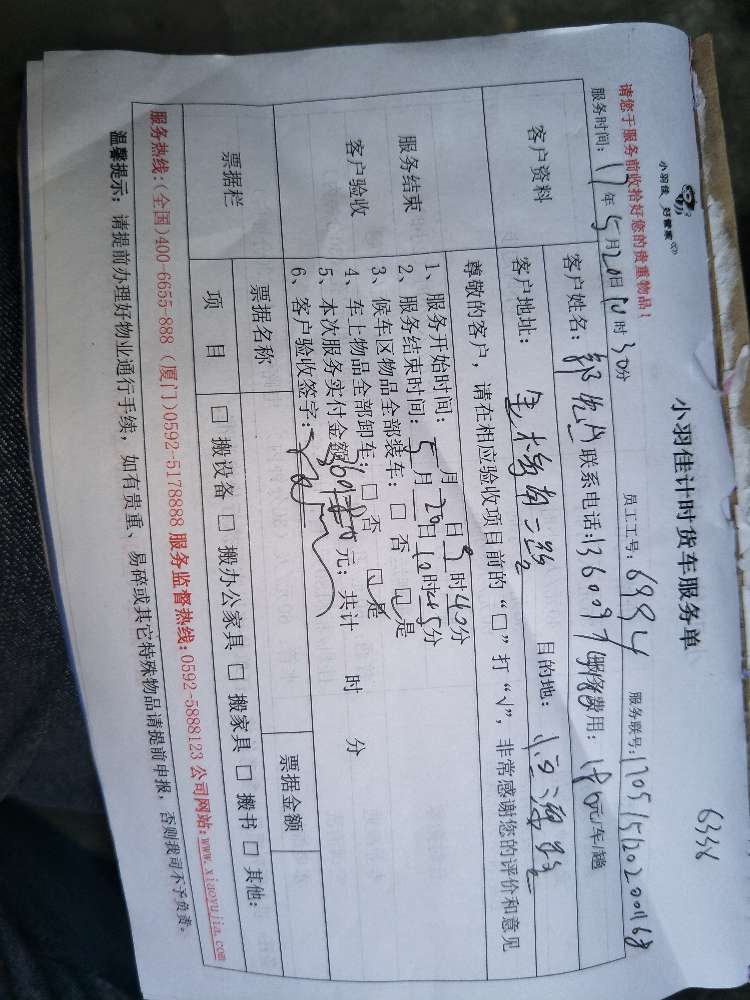 小羽佳 好管家
6338
小羽佳计时货车服务单
请您于服务前收拾好您的贵重物品!
员工工号: 6994 服务联号:
服务时间: 17年5月20日10时30分
客户资料 客户姓名: 联系电话: 服务费用: 180元/车/趟
客户地址: 目的地:
尊敬的客户，请在相应验收项目前的“□”打“√”，非常感谢您的评价和意见
服务结束
客户验收
1、服务开始时间: 月 日9时40分
2、服务结束时间: 5月20日10时45分
3、候车区物品全部装车: □ 否 □ 是
4、车上物品全部卸车: □ 否 □ 是
5、本次服务实付金额 元; 共计 时 分
6、客户验收签字:
票据栏 票据名称 票据金额
项 目 □ 搬设备 □ 搬办公家具 □ 搬家具 □ 搬书 □ 其他:
服务热线:(全国)400-6655-888 (厦门)0592-5178888 服务监督热线:0592-5888123 公司网站:www.xiaoyujia.com
温馨提示: 请提前办理好物业通行手续，如有贵重、易碎或其它特殊物品请提前申报，否则我司不予负责。